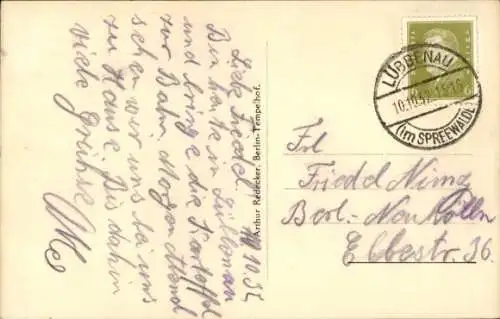 10.10.32
Liebe Friedel.
Bin heute in Lübbenau
und bringe die Kartoffel
zur Bahn. Morgen Abend
sehen wir uns bei uns
zu Hause. Bis dahin
viele Grüsse
Arthur Redecker, Berlin-Tempelhof.
LÜBBENAU
10.10.32
(im SPREEWALDE)
Frl.
Friedel
Berl.-Neukölln
Elbestr. 36.